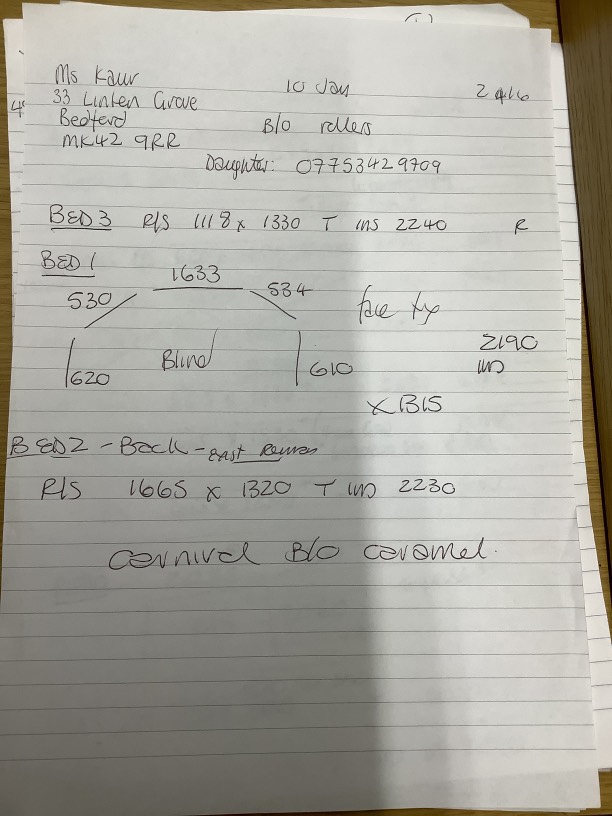 Ms Kaur 10 Jan
33 Linten Grove
Bedford B/O rollers
MK42 9RR
Daughter: 07753429709
BED 3 R/S 1118 x 1330 T INS 2240 R
BED 1
1633
530 534
face fix
2190
Blind INS
620 610
X 1315
BED 2 - Back - East
R/S 1665 x 1320 T INS 2230
Carnival B/O caramel.